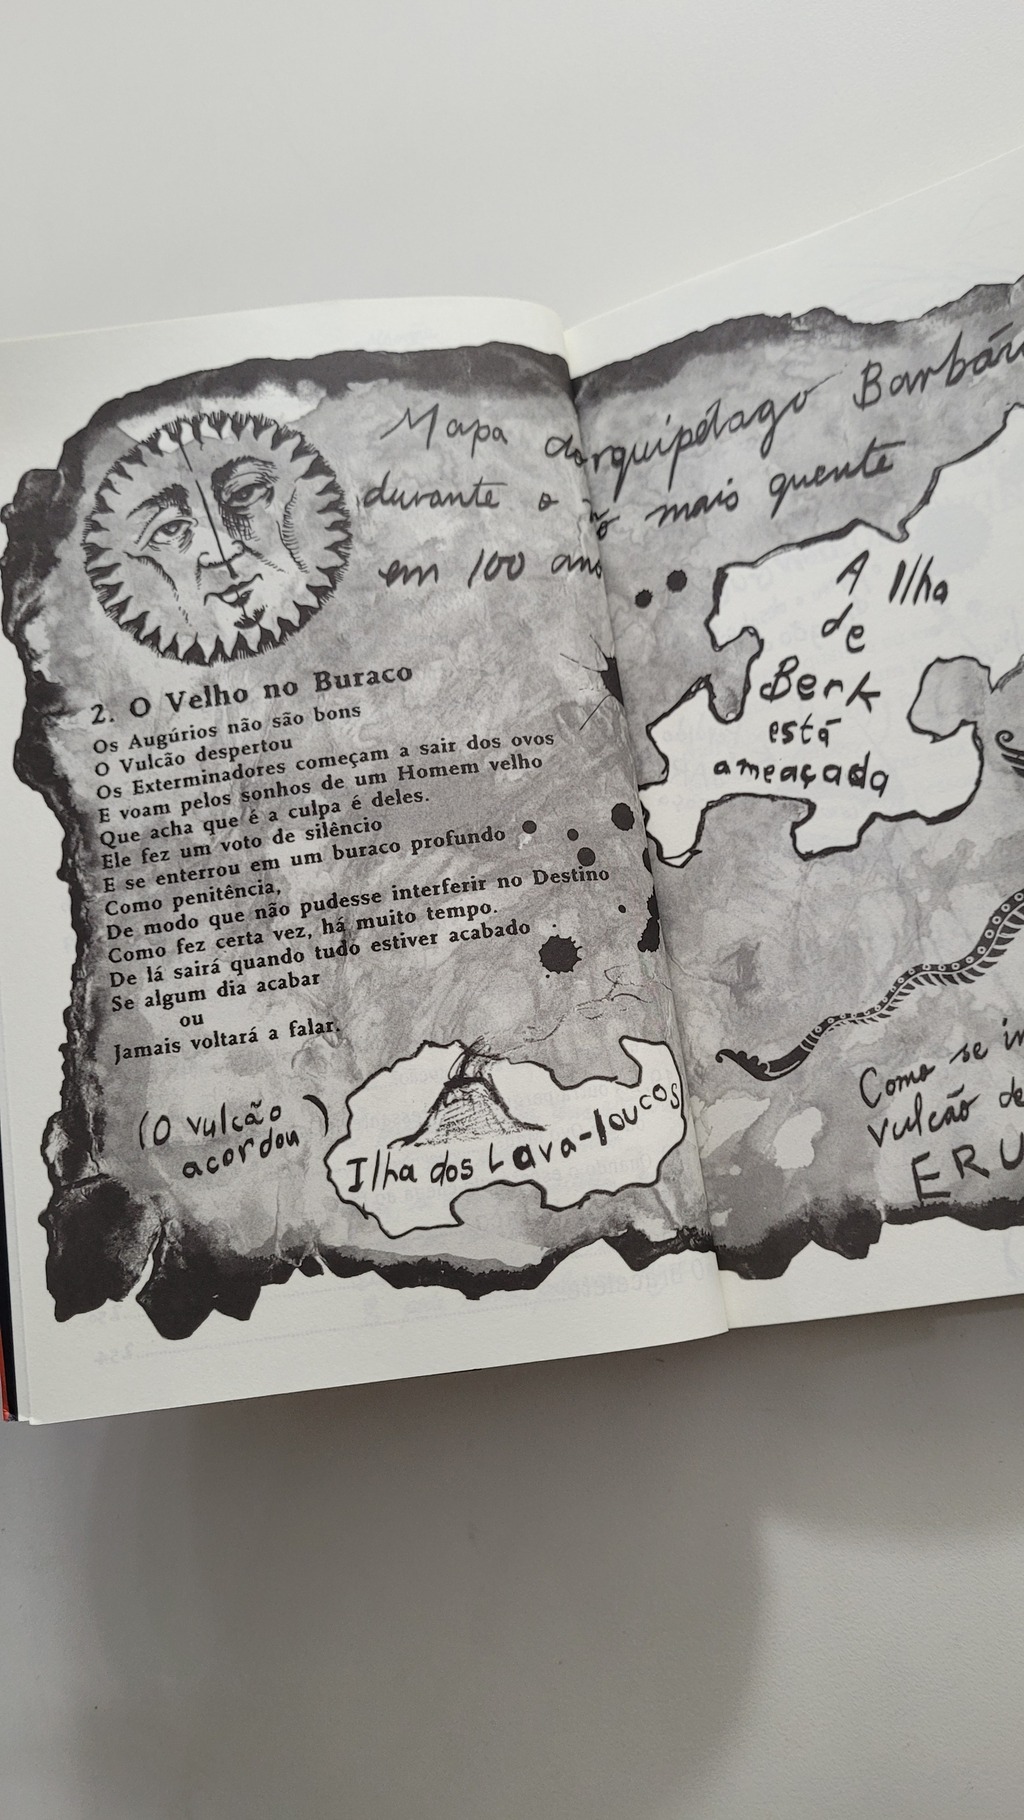 Mapa do arquipélago Barbári
durante o mais quente
em 100 anos
A Ilha
de
Berk
está
ameaçada
2. O Velho no Buraco
Os Augúrios não são bons
O Vulcão despertou
Os Exterminadores começam a sair dos ovos
E voam pelos sonhos de um Homem velho
Que acha que é a culpa é deles.
Ele fez um voto de silêncio
E se enterrou em um buraco profundo
Como penitência,
De modo que não pudesse interferir no Destino
Como fez certa vez, há muito tempo.
De lá sairá quando tudo estiver acabado
Se algum dia acabar
ou
Jamais voltará a falar.
(O vulcão
acordou)
Ilha dos Lava-loucos
Como se
vulcão de
ERU